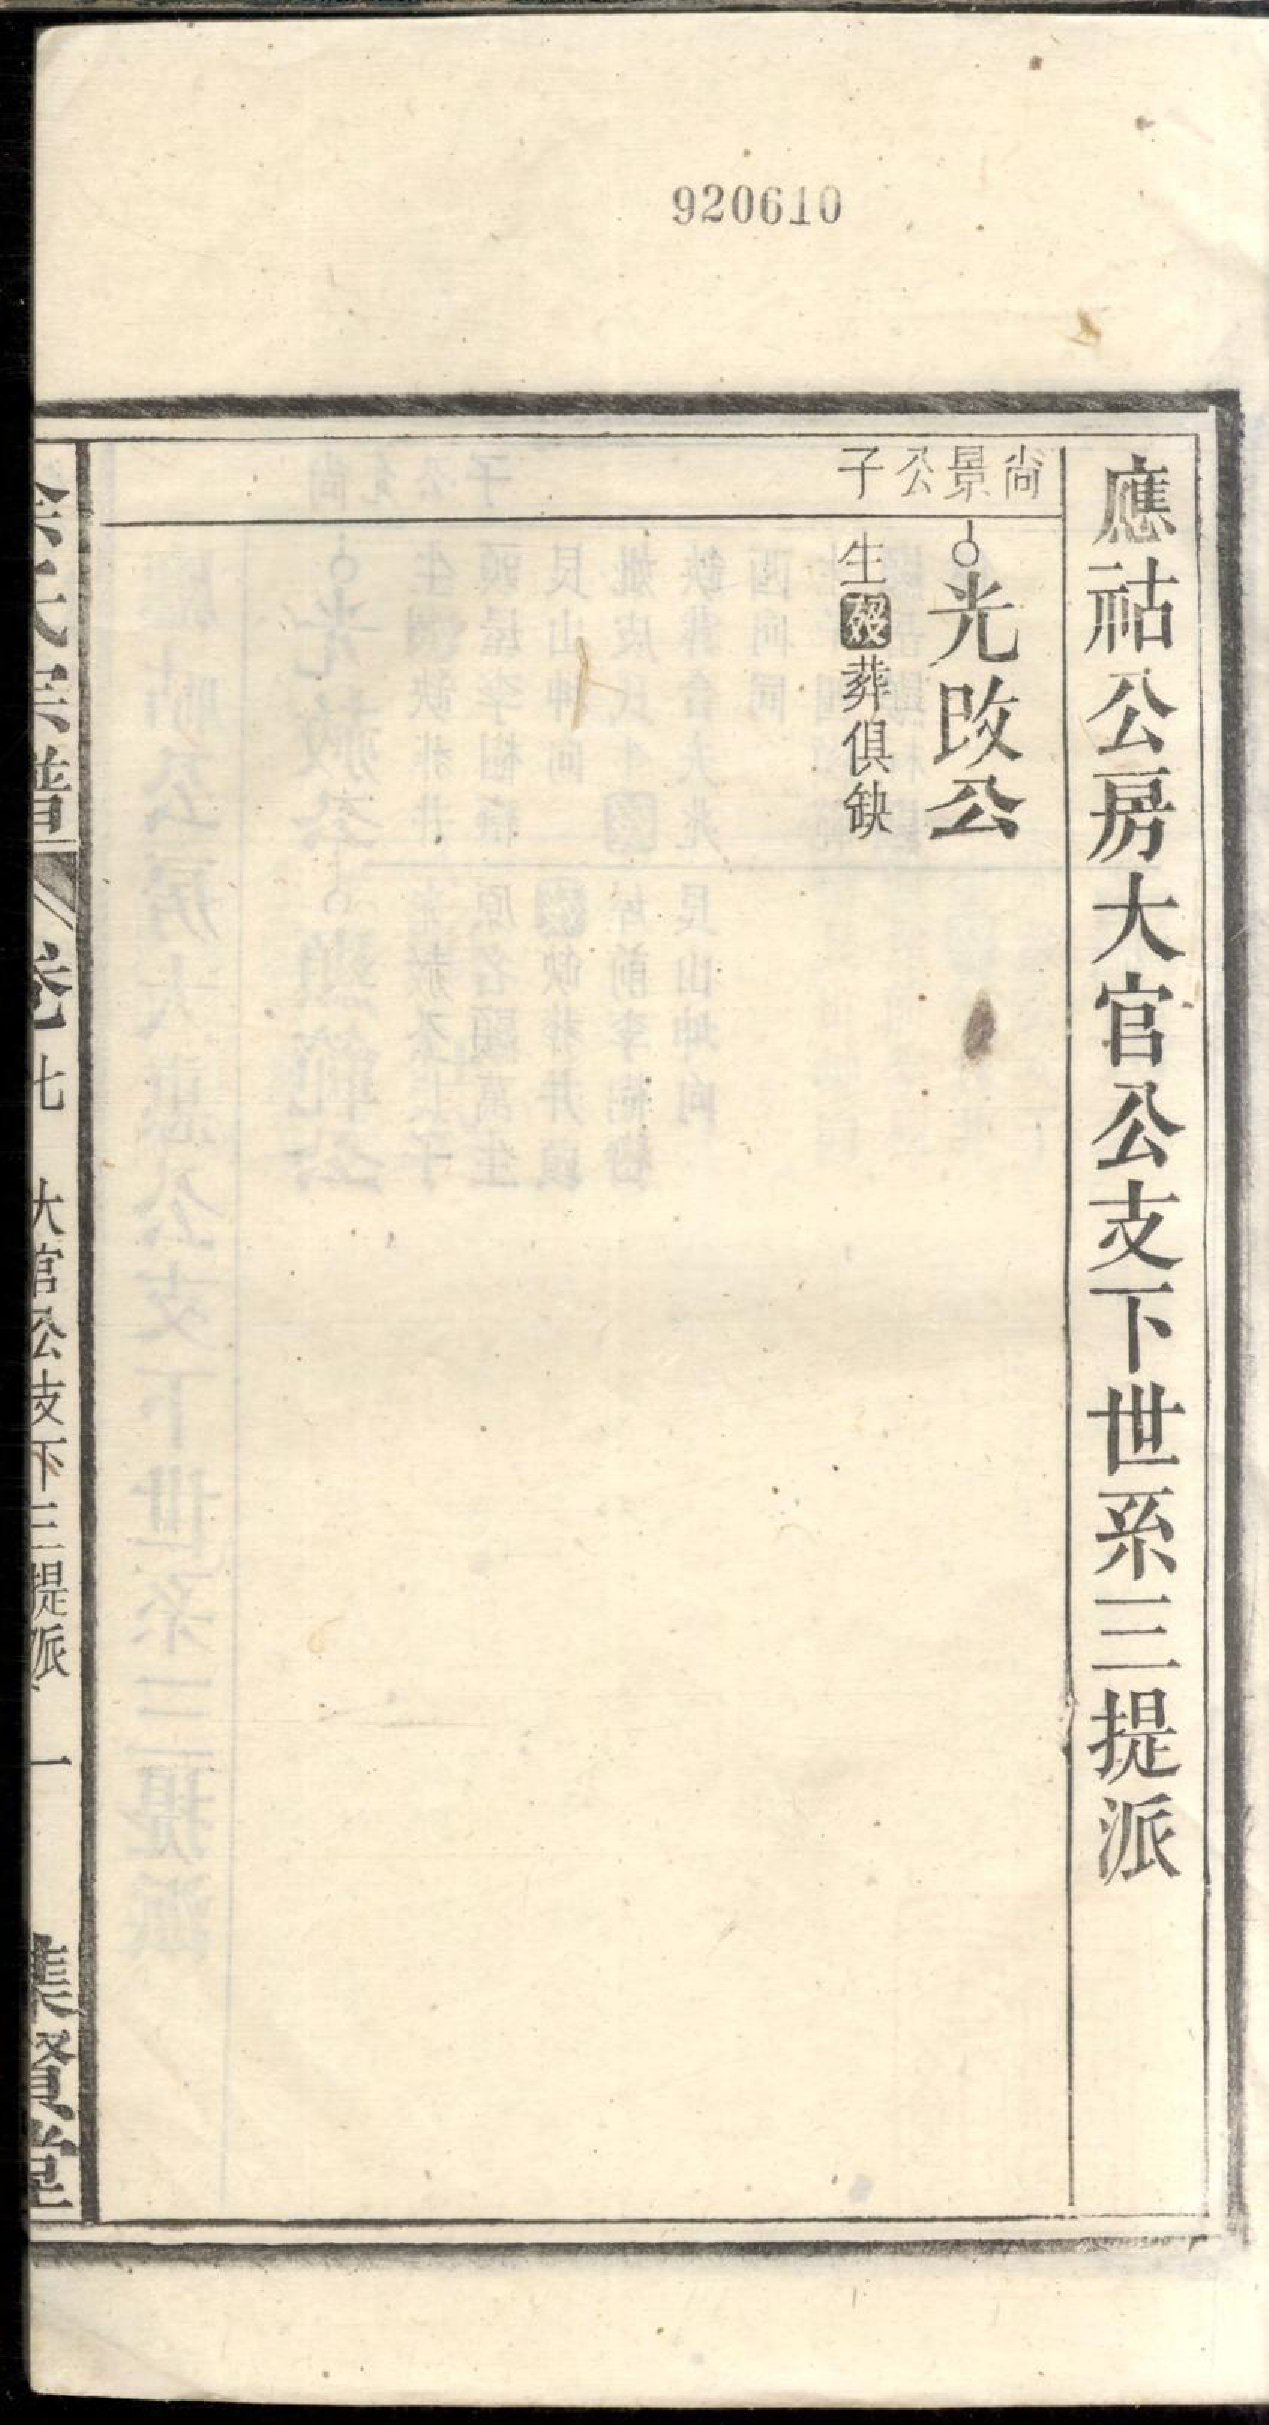 920610
應祜公房大官公支下世系三提派
尚景公子
光政公
生殁葬俱缺
氏宗譜 卷七 大官公支下三提派 一 集賢堂